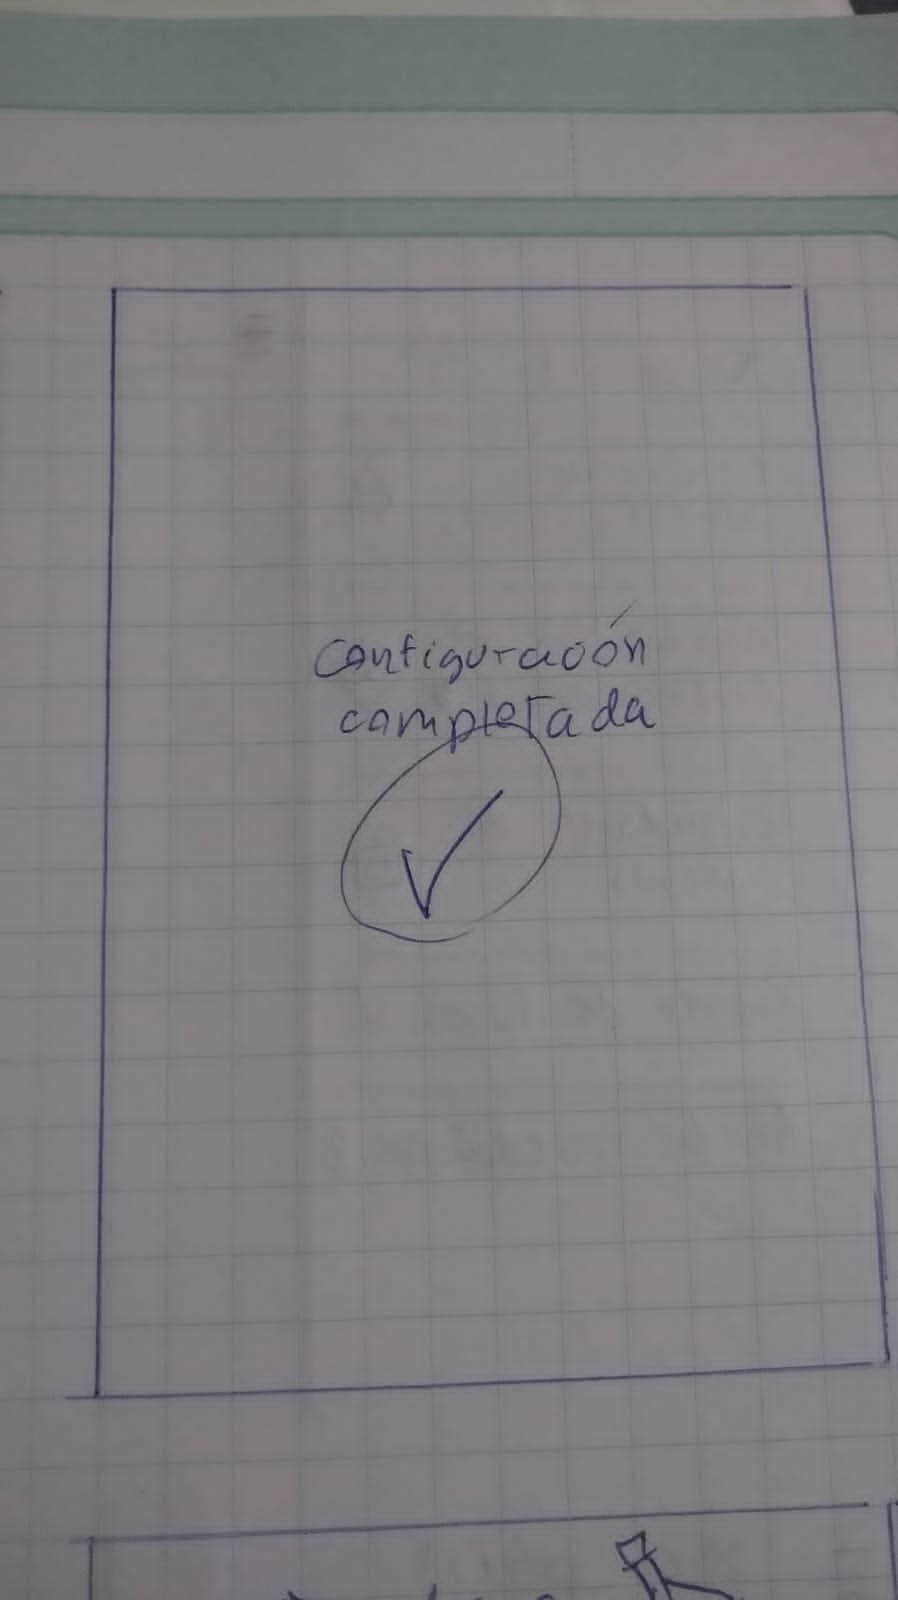 Configuración
completada